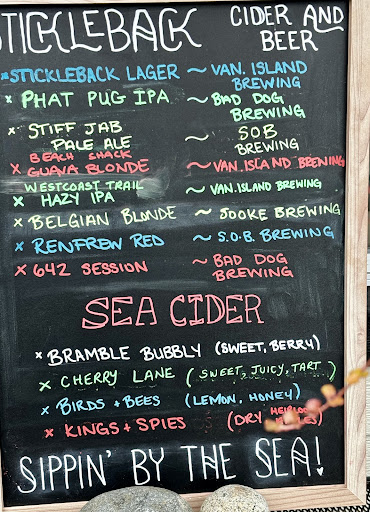 STICKLEBACK CIDER AND BEER
*STICKLEBACK LAGER ~ VAN. ISLAND BREWING
x PHAT PUG IPA ~ BAD DOG BREWING
x STIFF JAB PALE ALE ~ SOB BREWING
x BEACH SHACK GUAVA BLONDE ~ VAN. ISLAND BREWING
x WESTCOAST TRAIL HAZY IPA ~ VAN. ISLAND BREWING
x BELGIAN BLONDE ~ JOOKE BREWING
x RENFREW RED ~ S.O.B. BREWING
x 642 SESSION ~ BAD DOG BREWING
SEA CIDER
x BRAMBLE BUBBLY (SWEET, BERRY)
x CHERRY LANE (SWEET, JUICY, TART)
x BIRDS + BEES (LEMON, HONEY)
x KINGS + SPIES (DRY HEIRLOOM
SIPPIN' BY THE SEA!